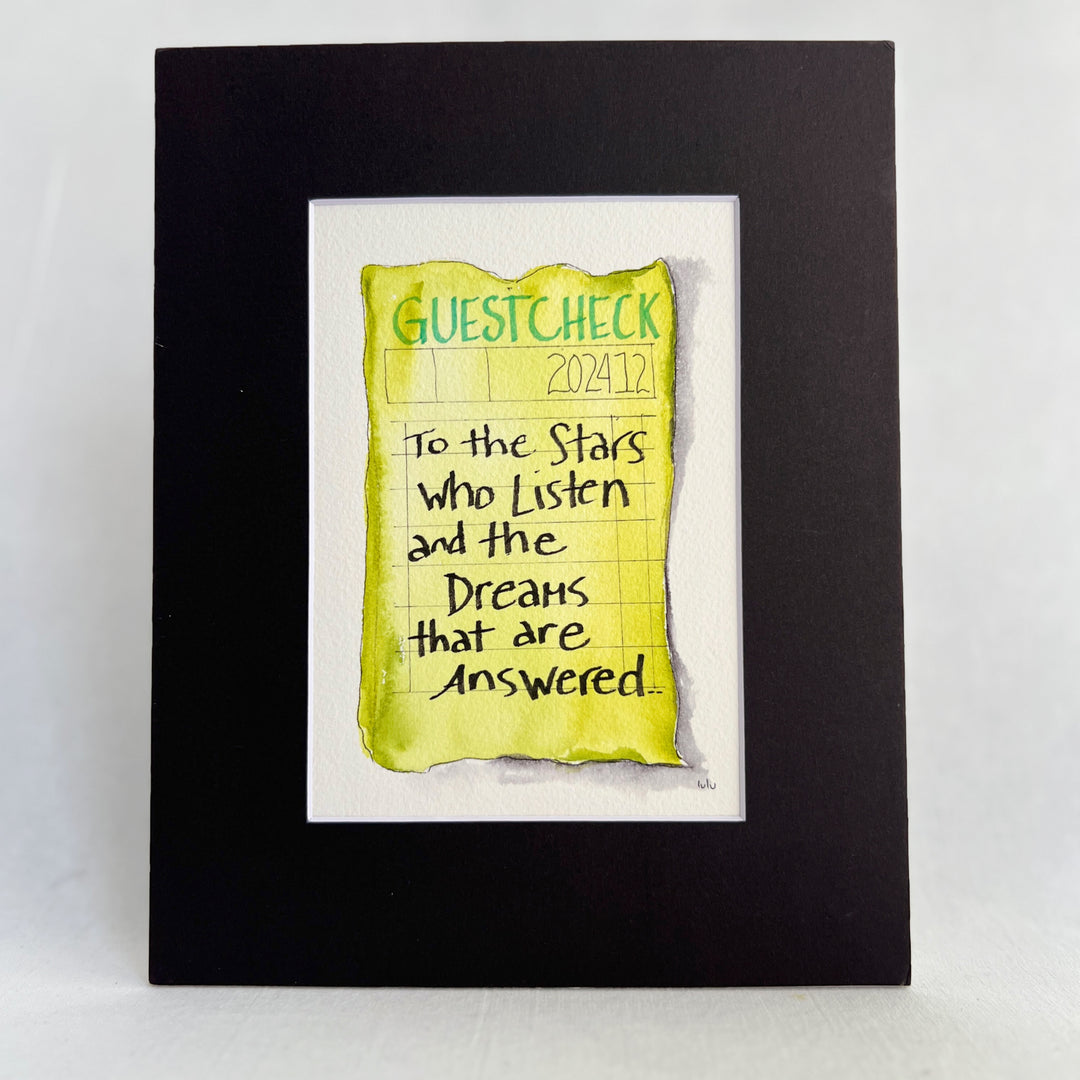 GUESTCHECK
202412
To the Stars
who Listen
and the
Dreams
that are
Answered..
lulu